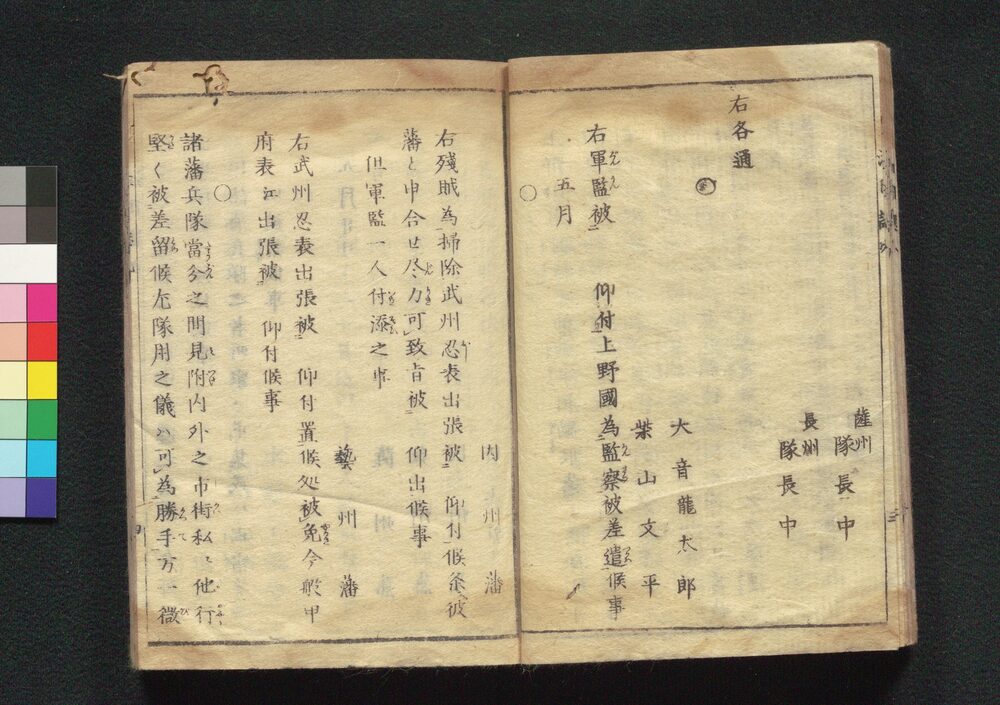 薩州
隊長中
長州
隊長中
右各通
大音龍太郎
柴山文平
右軍監被　仰付上野國為監察被差遣候事
五月
〇
因州藩
右残賊為掃除武州忍表出張被　仰付候条彼
藩と申合セ尽力可致旨被　仰出候事
但軍監一人付添之事
藝州藩
右武州忍表出張被　仰付置候処被免今般甲
府表江出張被　仰付候事
〇
諸藩兵隊當今之間見附内外之市街私ニ他行
堅く被差留候尤隊用之儀ハ可為勝手万一徴